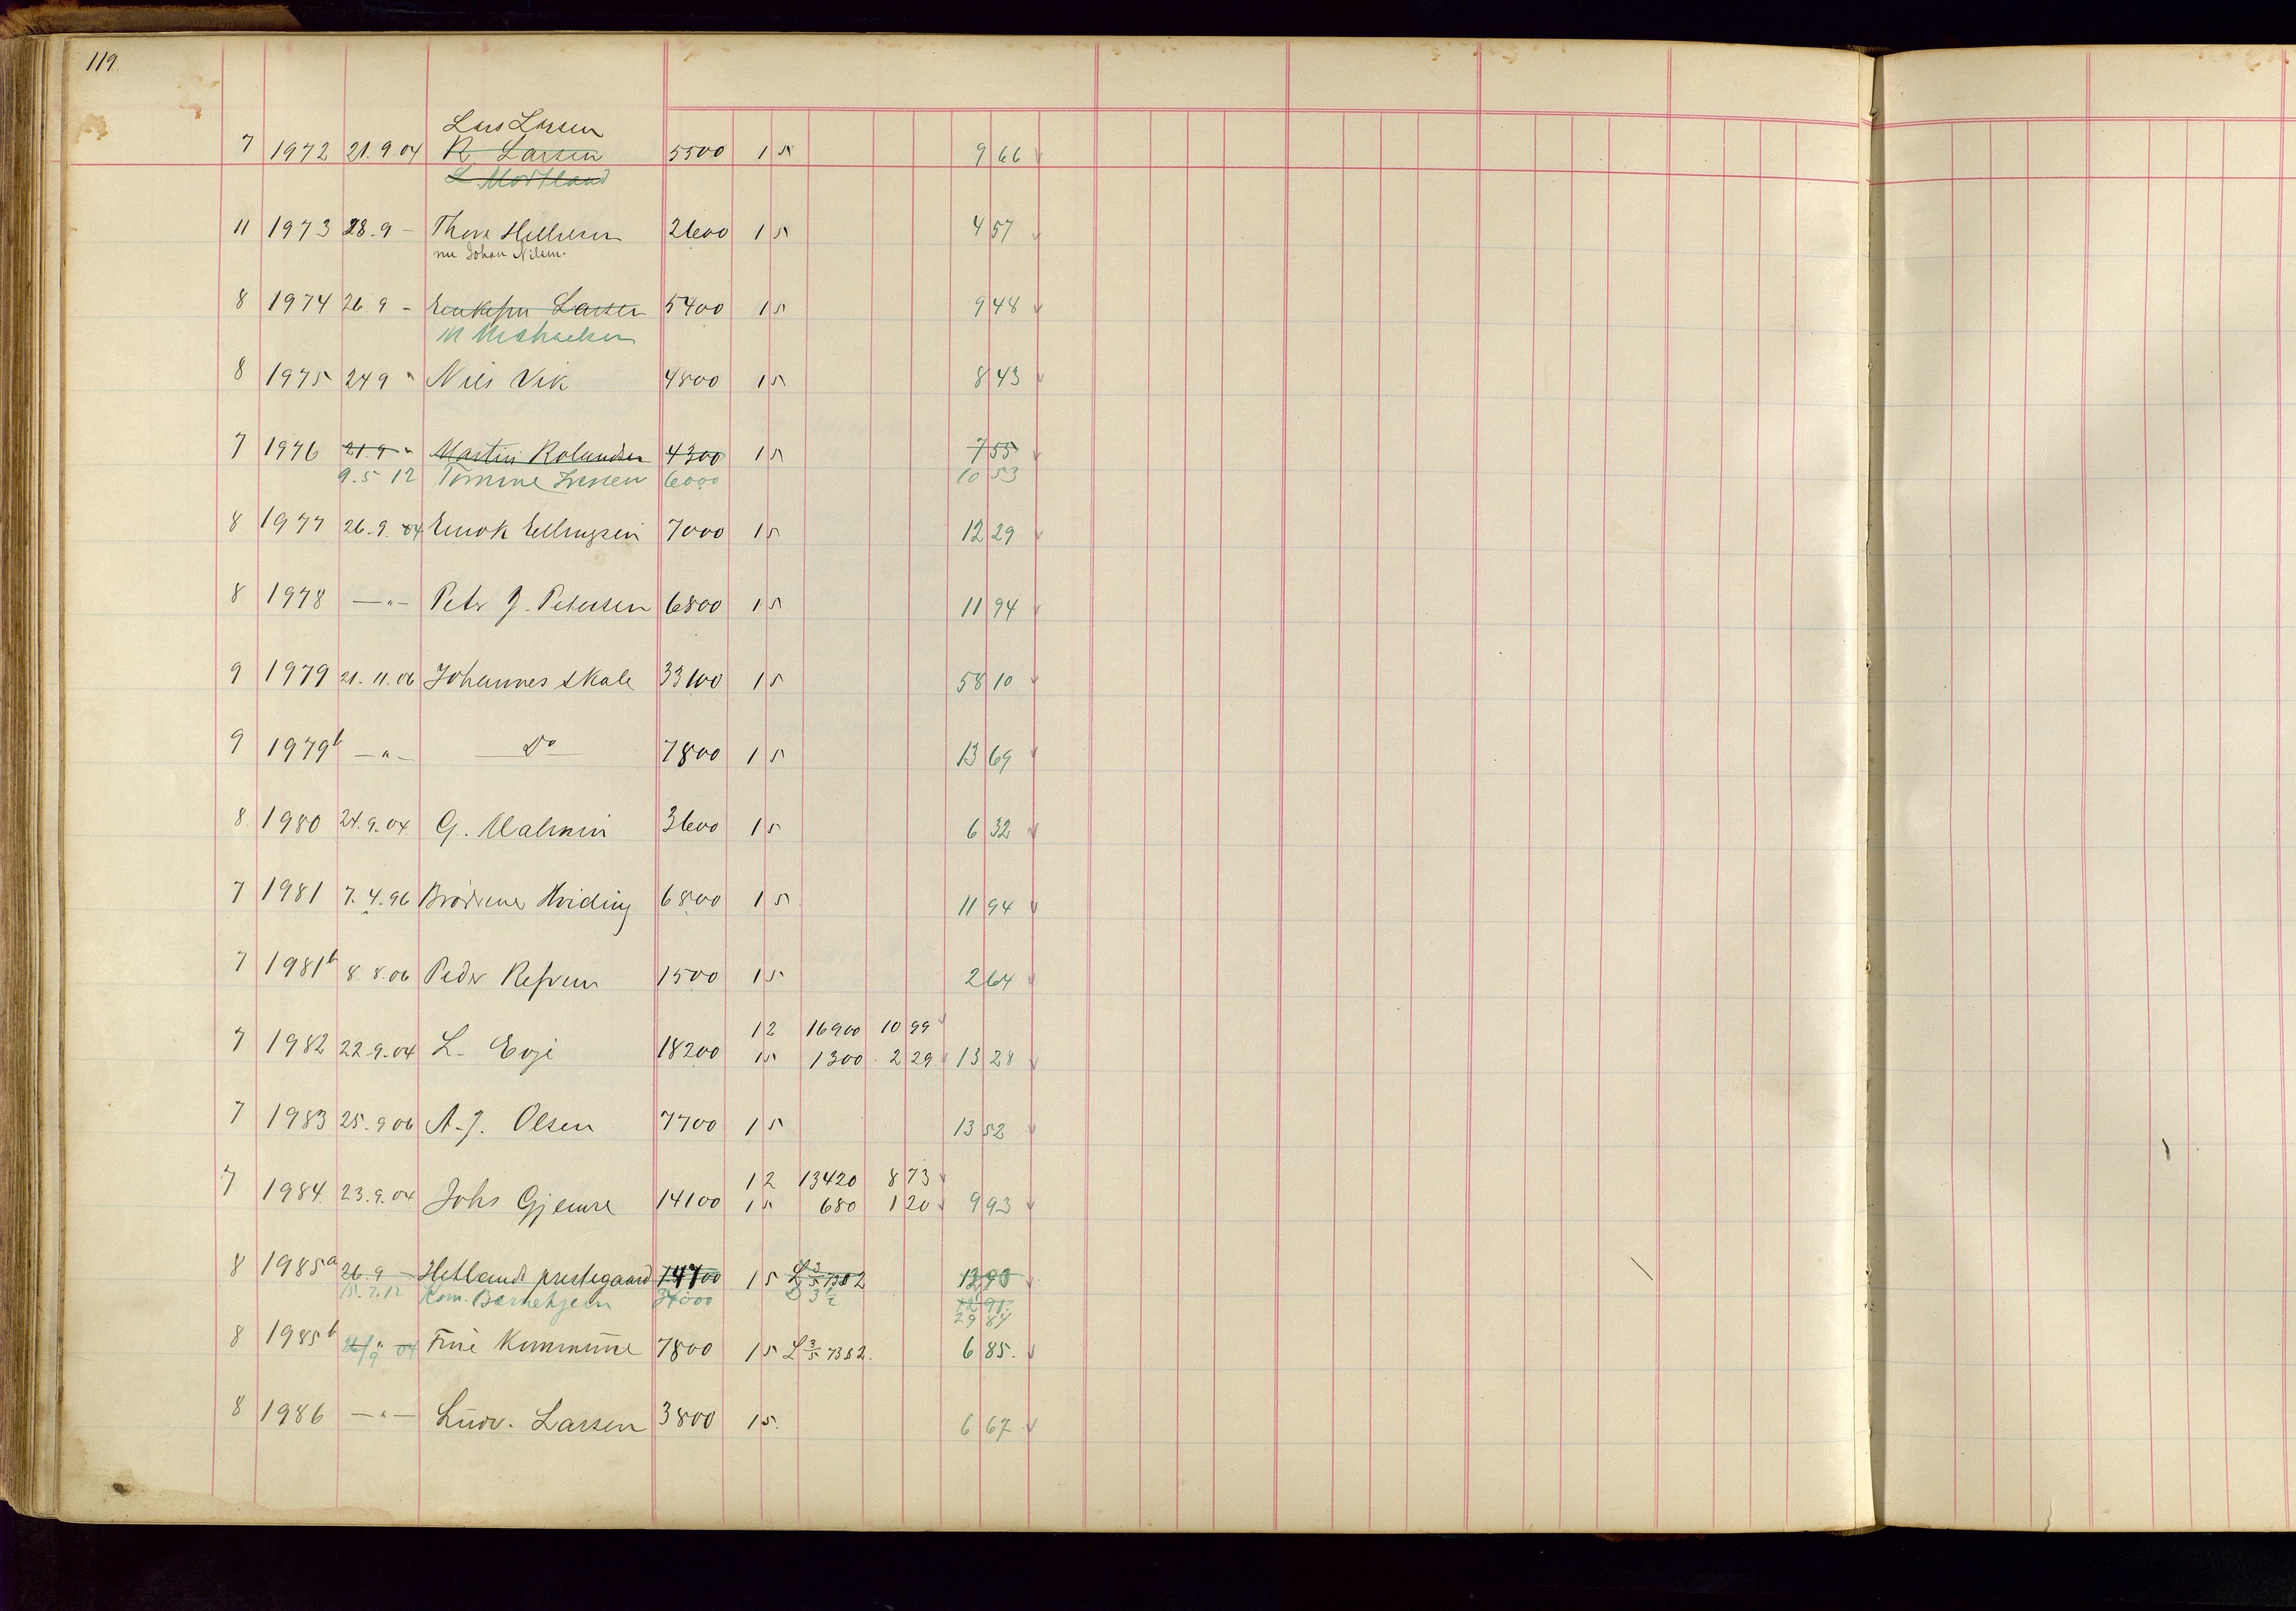 119.
Lars Larsen
7 1972 21.9.04 R. Larsen 5500 1 5 9 66
L. Mortland
11 1973 28.9 - Thore Hellesen 2600 1 5 4 57
nu Johan Nilsen.
8 1974 26.9 - Enkefru Larsen 5400 1 5 9 48
M Michaelsen
8 1975 24 9 " Nils Vik 4800 1 5 8 43
7 1976 21.9 " Martin Rolandsen 4300 1 5 7 55
9.5 12 Tomine Iversen 6000 10 53
8 1977 26.9.04 Enok Ellingsen 7000 1 5 12 29
8 1978 — " — Peter J. Petersen 6800 1 5 11 94
9 1979 21.11.06 Johannes Skale 33100 1 5 58 10
9 1979b — " — Do 7800 1 5 13 69
8. 1980 24.9.04. G. Malmin 3600 1 5 6 32
7 1981 7.4.96 Brødrene Hviding 6800 1 5 11 94
7 1981b 8.8.06 Peder Refvem 1500 1 5 2 64
1 2 16900 10 99
7 1982 22.9.04 L. Evje 18200 1 5 1300 2 29 13 28
7 1983 25.9 06 A. J. Olsen 7700 1 5 13 52
1 2 13420 8 73
7 1984. 23.9.04 Johs Gjemre 14100 1 5 680 1 20 9 93
8 1985a 26.9 - Hetlands prestegaard 14700 1 5 L 3/5 7382 12 90
15.7.12 Kom. Barnehjem 34000 12 91
29 84
8 1985b 26/9 " 04 Frue Kommune 7800 1 5 L 3/5 7382. 6 85.
8 1986 — " — Ludv. Larsen 3800 1 5. 6 67